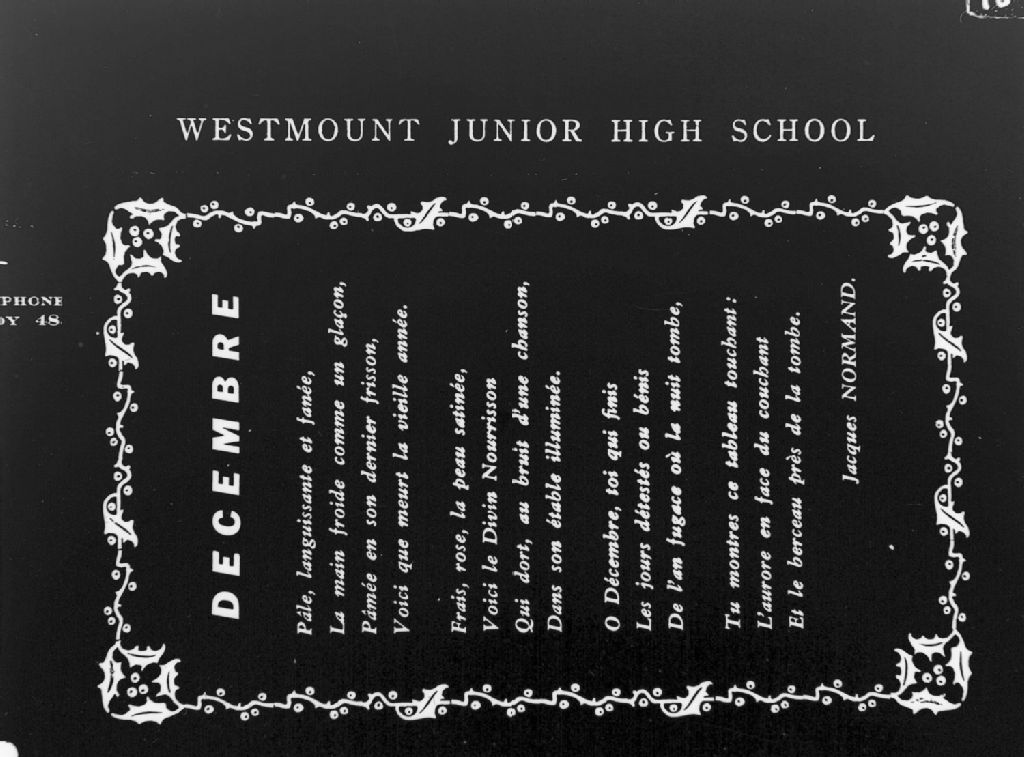 WESTMOUNT JUNIOR HIGH SCHOOL
PHONE
48
DECEMBRE
Pâle, languissante et fanée,
La main froide comme un glaçon,
Pâmée en son dernier frisson,
Voici que meurt la vieille année.
Frais, rose, la peau satinée,
Voici le Divin Nourrisson
Qui dort, au bruit d'une chanson,
Dans son étable illuminée.
O Décembre, toi qui finis
Les jours détestés ou bénis
De l'an fugace où la nuit tombe,
Tu montres ce tableau touchant:
L'aurore en face du couchant
Et le berceau près de la tombe.
Jacques NORMAND.